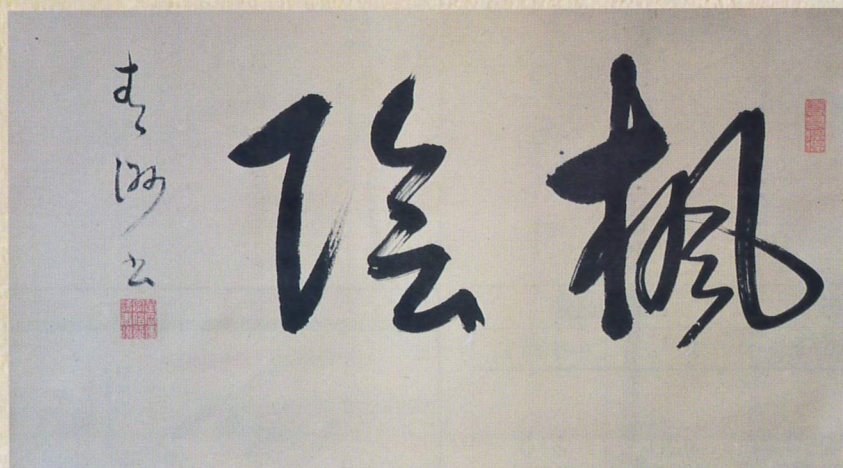 楓陰
青洲書